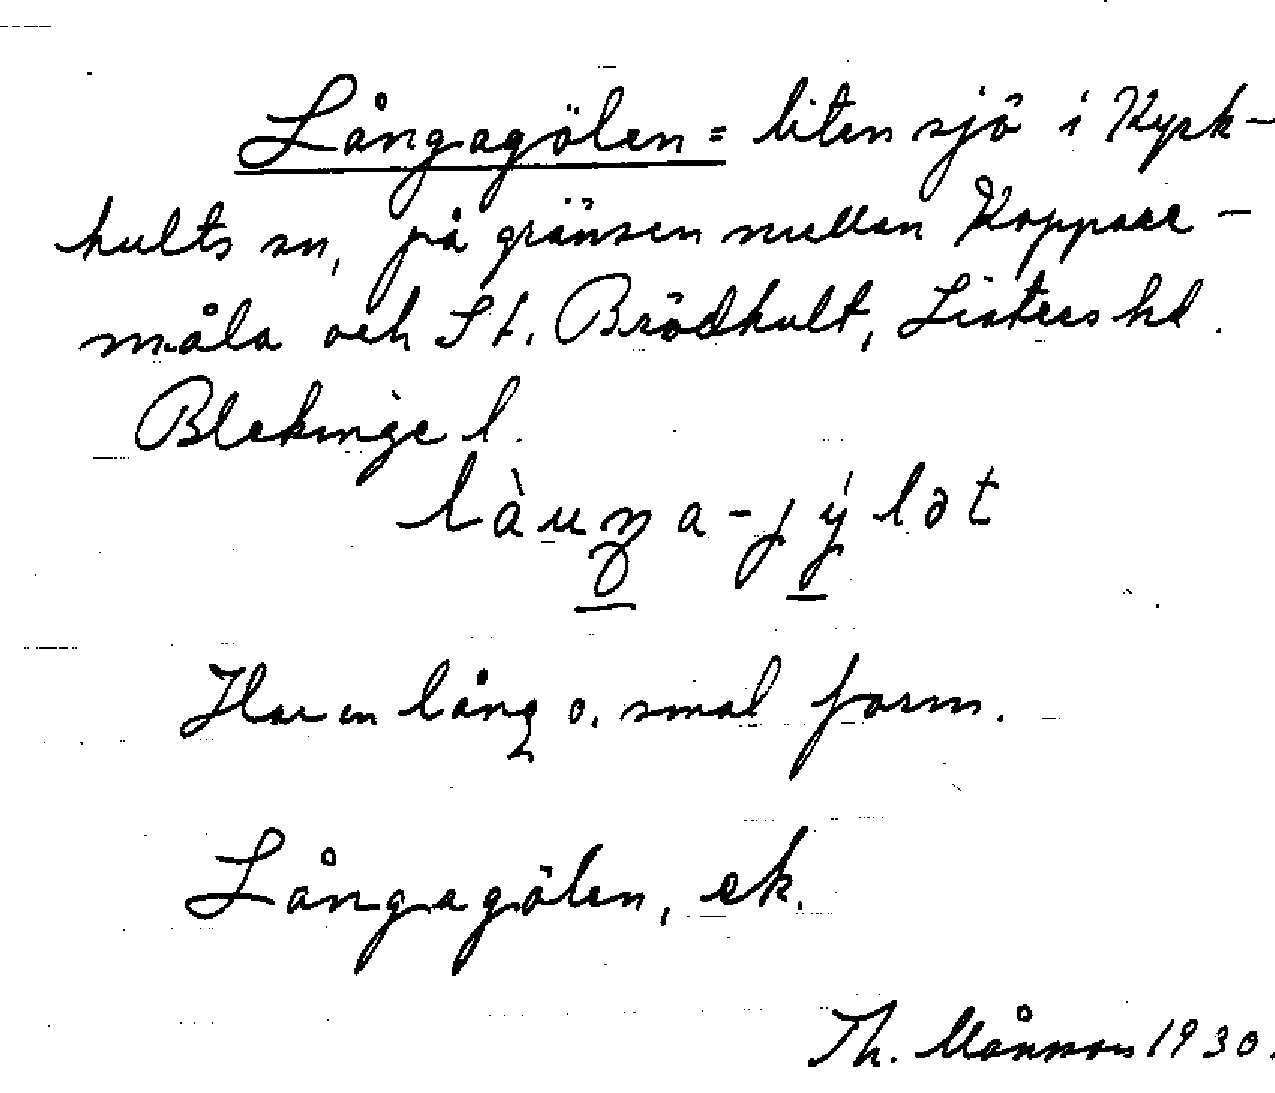 Långagölen = liten sjö i Kyrk-
hults sn, på gränsen mellan Koppare-
måla och St. Brödhult, Listers hd.
Blekinge l.
Har en lång o. smal form.
Långagölen, ek.
Th. Månsson 1930.